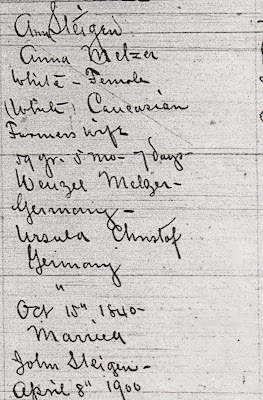 Ann Steigen
Anna Metzer
White - Female
White, Caucasian
Farmers wife
59 yr. 5 mo - 7 days -
Wenzel Melzer -
Germany -
Ursula Christof
Germany
"
Oct 15th, 1840 -
Married
John Steigen -
April 8th 1900